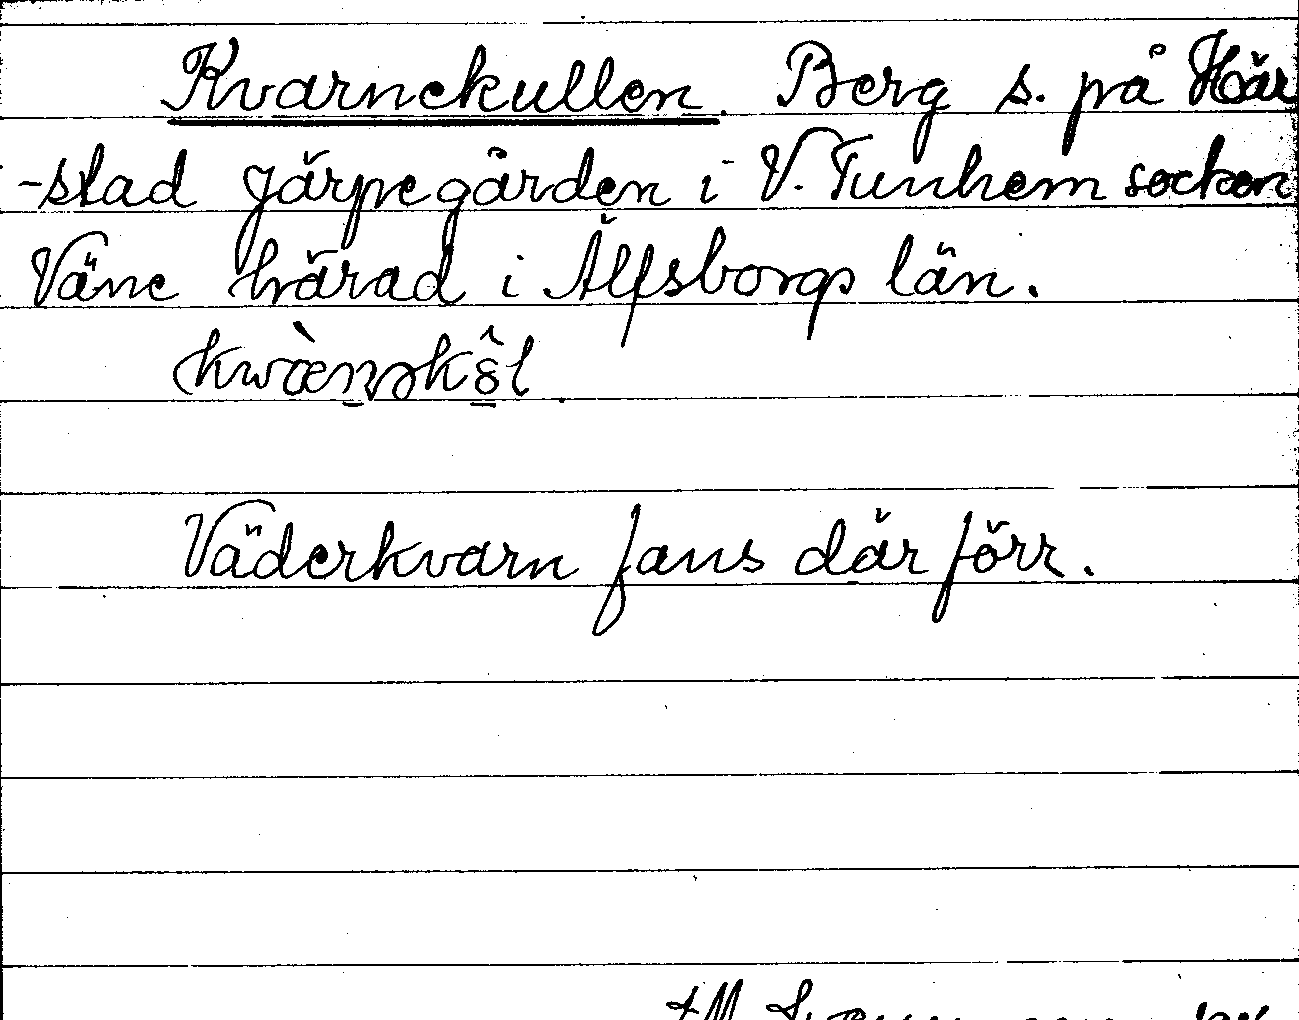 Kvarnekullen. Berg s. på Här
-stad Järpegården i V. Tunhem socken
Väne härad i Älfsborgs län.
Väderkvarn fans där förr.